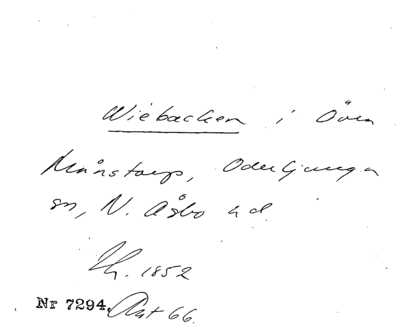 Wiebacken i Övra
Månstorp, Oderljunga
sn, N. Åsbo hd.
Th. 1852
Nr 7294. Aut 66.